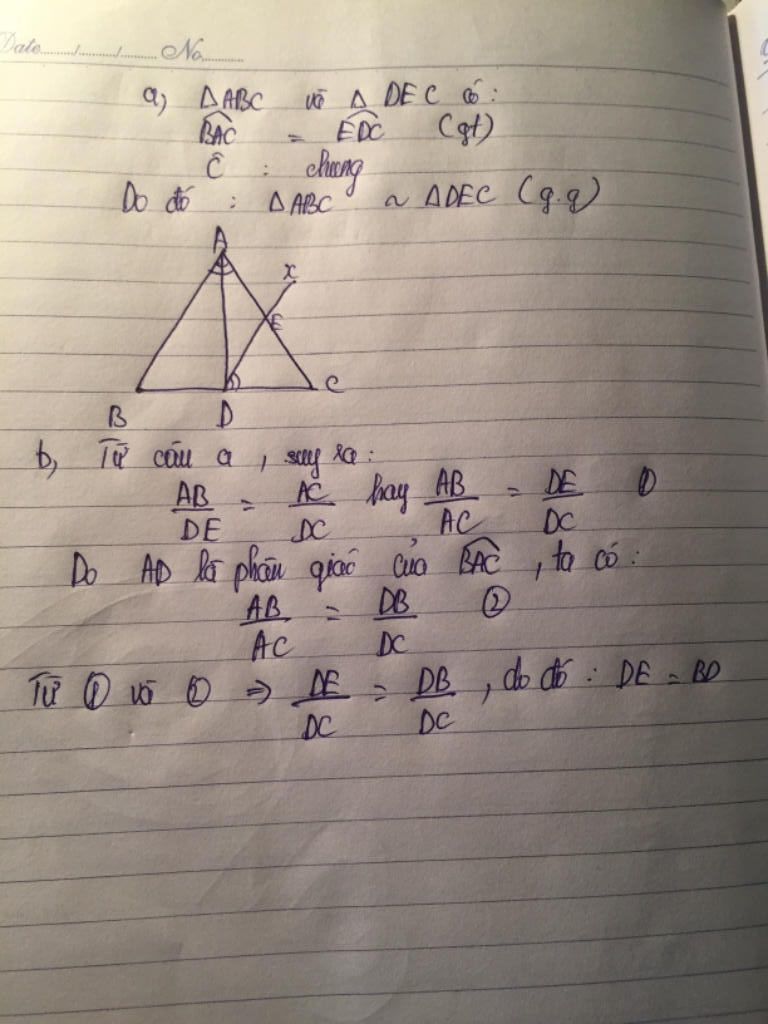 Date......./......./........ No..........
a, ΔABC và Δ DEC có:
BAC = EDC (gt)
Ĉ : chung
Do đó : ΔABC ~ ΔDEC (g.g)
A
x
E
B D C
b, Từ câu a, suy ra:
AB/DE = AC/DC hay AB/AC = DE/DC ①
Do AD là phân giác của BAC, ta có:
AB/AC = DB/DC ②
Từ ① và ② ⇒ DE/DC = DB/DC, do đó : DE = BD